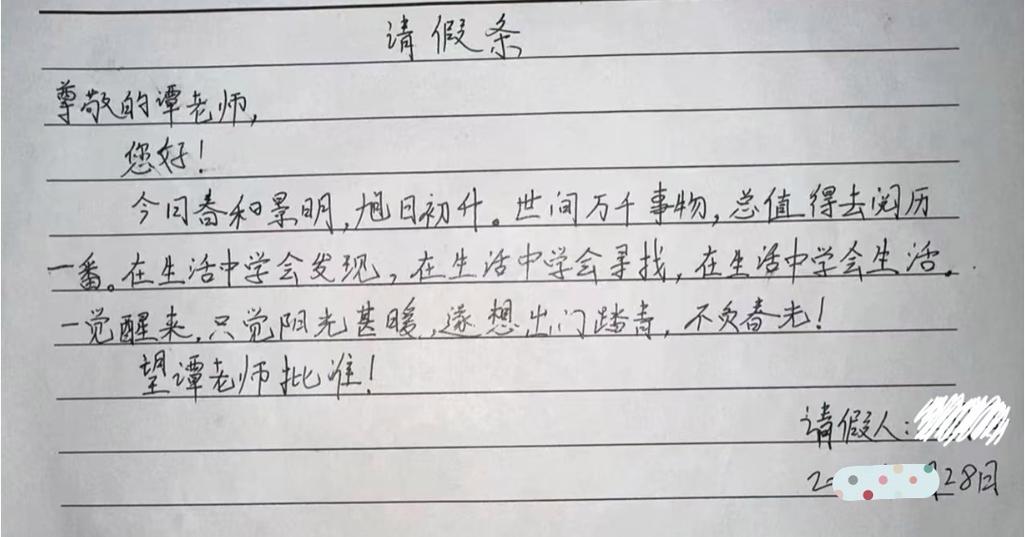 请假条
尊敬的谭老师,
您好!
今日春和景明,旭日初升。世间万千事物,总值得去阅历
一番。在生活中学会发现,在生活中学会寻找,在生活中学会生活。
一觉醒来,只觉阳光甚暖,遂想出门踏青,不负春光!
望谭老师批准!
请假人:
28日